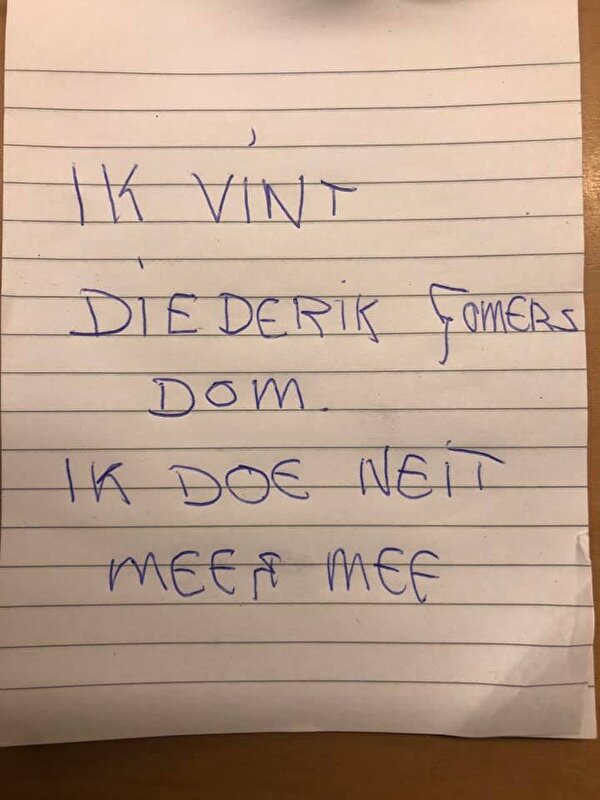 IK VINT
DIEDERIK GOMERS
DOM.
IK DOE NEIT
MEER MEE